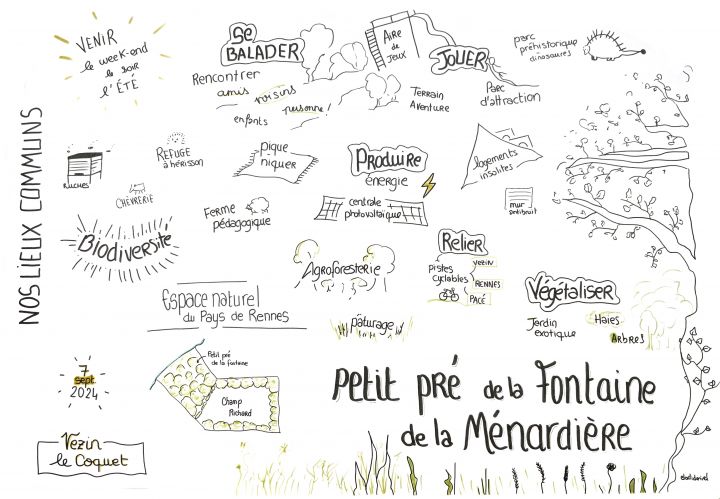 NOS LIEUX COMMUNS
VENIR
le week-end
le soir
l'ÉTÉ
Se
BALADER
Rencontrer
amis voisins
personne
enfants
AIRE
de
JEUX
JOUER
Terrain
Aventure
Parc
d'attraction
parc
préhistorique
dinosaures
RUCHES
REFUGE
à hérisson
CHÈVRERIE
pique
niquer
Produire
énergie
centrale
photovoltaïque
logements
insolites
mur
antibruit
Biodiversité
Ferme
pédagogique
Agroforesterie
Relier
Pistes
cyclables
VEZIN
RENNES
PACÉ
Végétaliser
Jardin
exotique
Haies
ARBRES
Espace naturel
du Pays de Rennes
pâturage
7
sept.
2024
Vezin
le Coquet
Petit pré
de la fontaine
Champ
Richard
Petit pré de la Fontaine
de la Ménardière